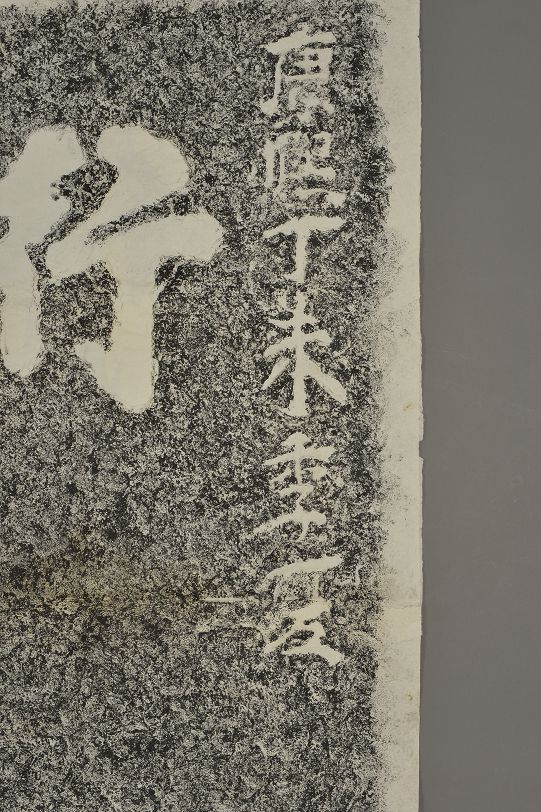 康熙丁未季夏